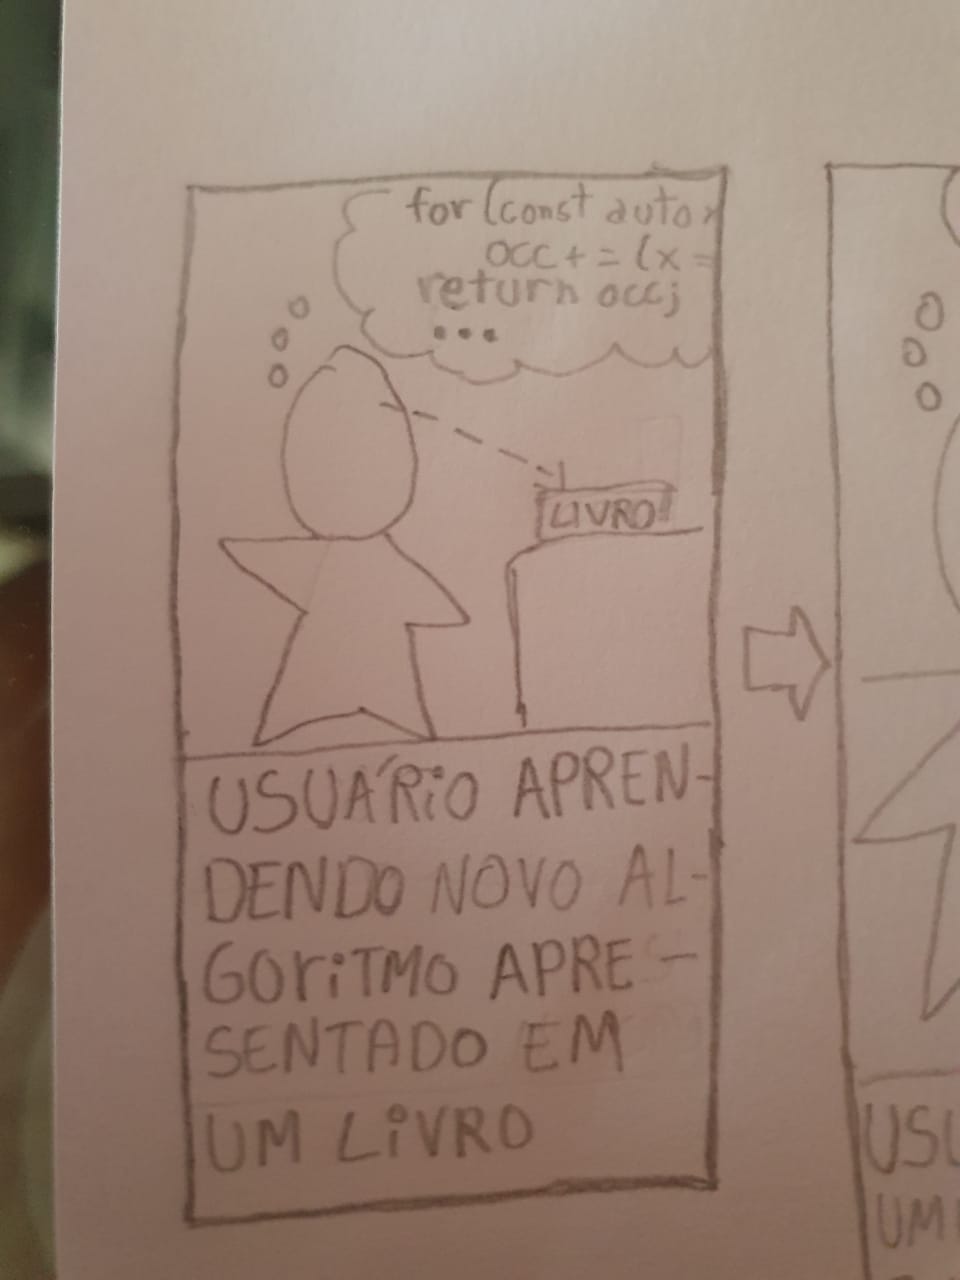 for (const auto
occ += (x =
return occ;
...
LIVRO
USUÁRiO APREN-
DENDO NOVO AL-
GORiTMO APRE-
SENTADO EM
UM LiVRO
USU
UM